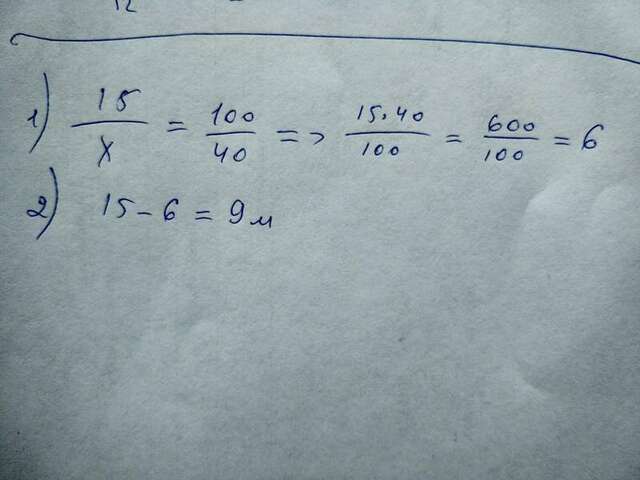 12
1) 15/x = 100/40 => 15·40/100 = 600/100 = 6
2) 15 - 6 = 9 м